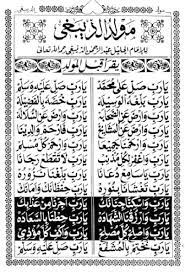 مولد الديبعي
للإمام الجليل عبد الرحمن الديبعي رحمه الله تعالى
يقرأ قبل المولد
يَا رَبِّ صَلِّ عَلَى مُحَمَّدْ يَا رَبِّ صَلِّ عَلَيْهِ وَسَلِّمْ
يَا رَبِّ بَلِّغْهُ الْوَسِيْلَةْ يَا رَبِّ خُصَّهْ بِالْفَضِيْلَةْ
يَا رَبِّ وَارْضَ عَنِ الصَّحَابَةْ يَا رَبِّ وَارْضَ عَنِ السُّلَالَةْ
يَا رَبِّ وَارْضَ عَنِ الْمَشَايِخْ يَا رَبِّ فَارْحَمْ وَالِدِيْنَا
يَا رَبِّ وَارْحَمْنَا جَمِيْعًا يَا رَبِّ وَارْحَمْ كُلَّ مُسْلِمْ
يَا رَبِّ وَاغْفِرْ لِكُلِّ مُذْنِبْ يَا رَبِّ لَا تَقْطَعْ رَجَانَا
يَا رَبِّ يَا سَامِعْ دُعَانَا يَا رَبِّ بَلِّغْنَا نَزُوْرُهْ
يَا رَبِّ تَغْشَانَا بِنُوْرِهْ يَا رَبِّ حِفْظَانَكْ وَأَمَانَكْ
يَا رَبِّ وَاسْكِنَّا جِنَانَكْ يَا رَبِّ أَجِرْنَا مِنْ عَذَابِكْ
يَا رَبِّ وَارْزُقْنَا الشَّهَادَةْ يَا رَبِّ حِطْنَا بِالسَّعَادَةْ
يَا رَبِّ وَاصْلِحْ كُلَّ مُصْلِحْ يَا رَبِّ وَاكْفِ كُلَّ مُؤْذِيْ
يَا رَبِّ نَخْتِمْ بِالْمُشَفَّعْ يَا رَبِّ صَلِّ عَلَيْهِ وَسَلِّمْ